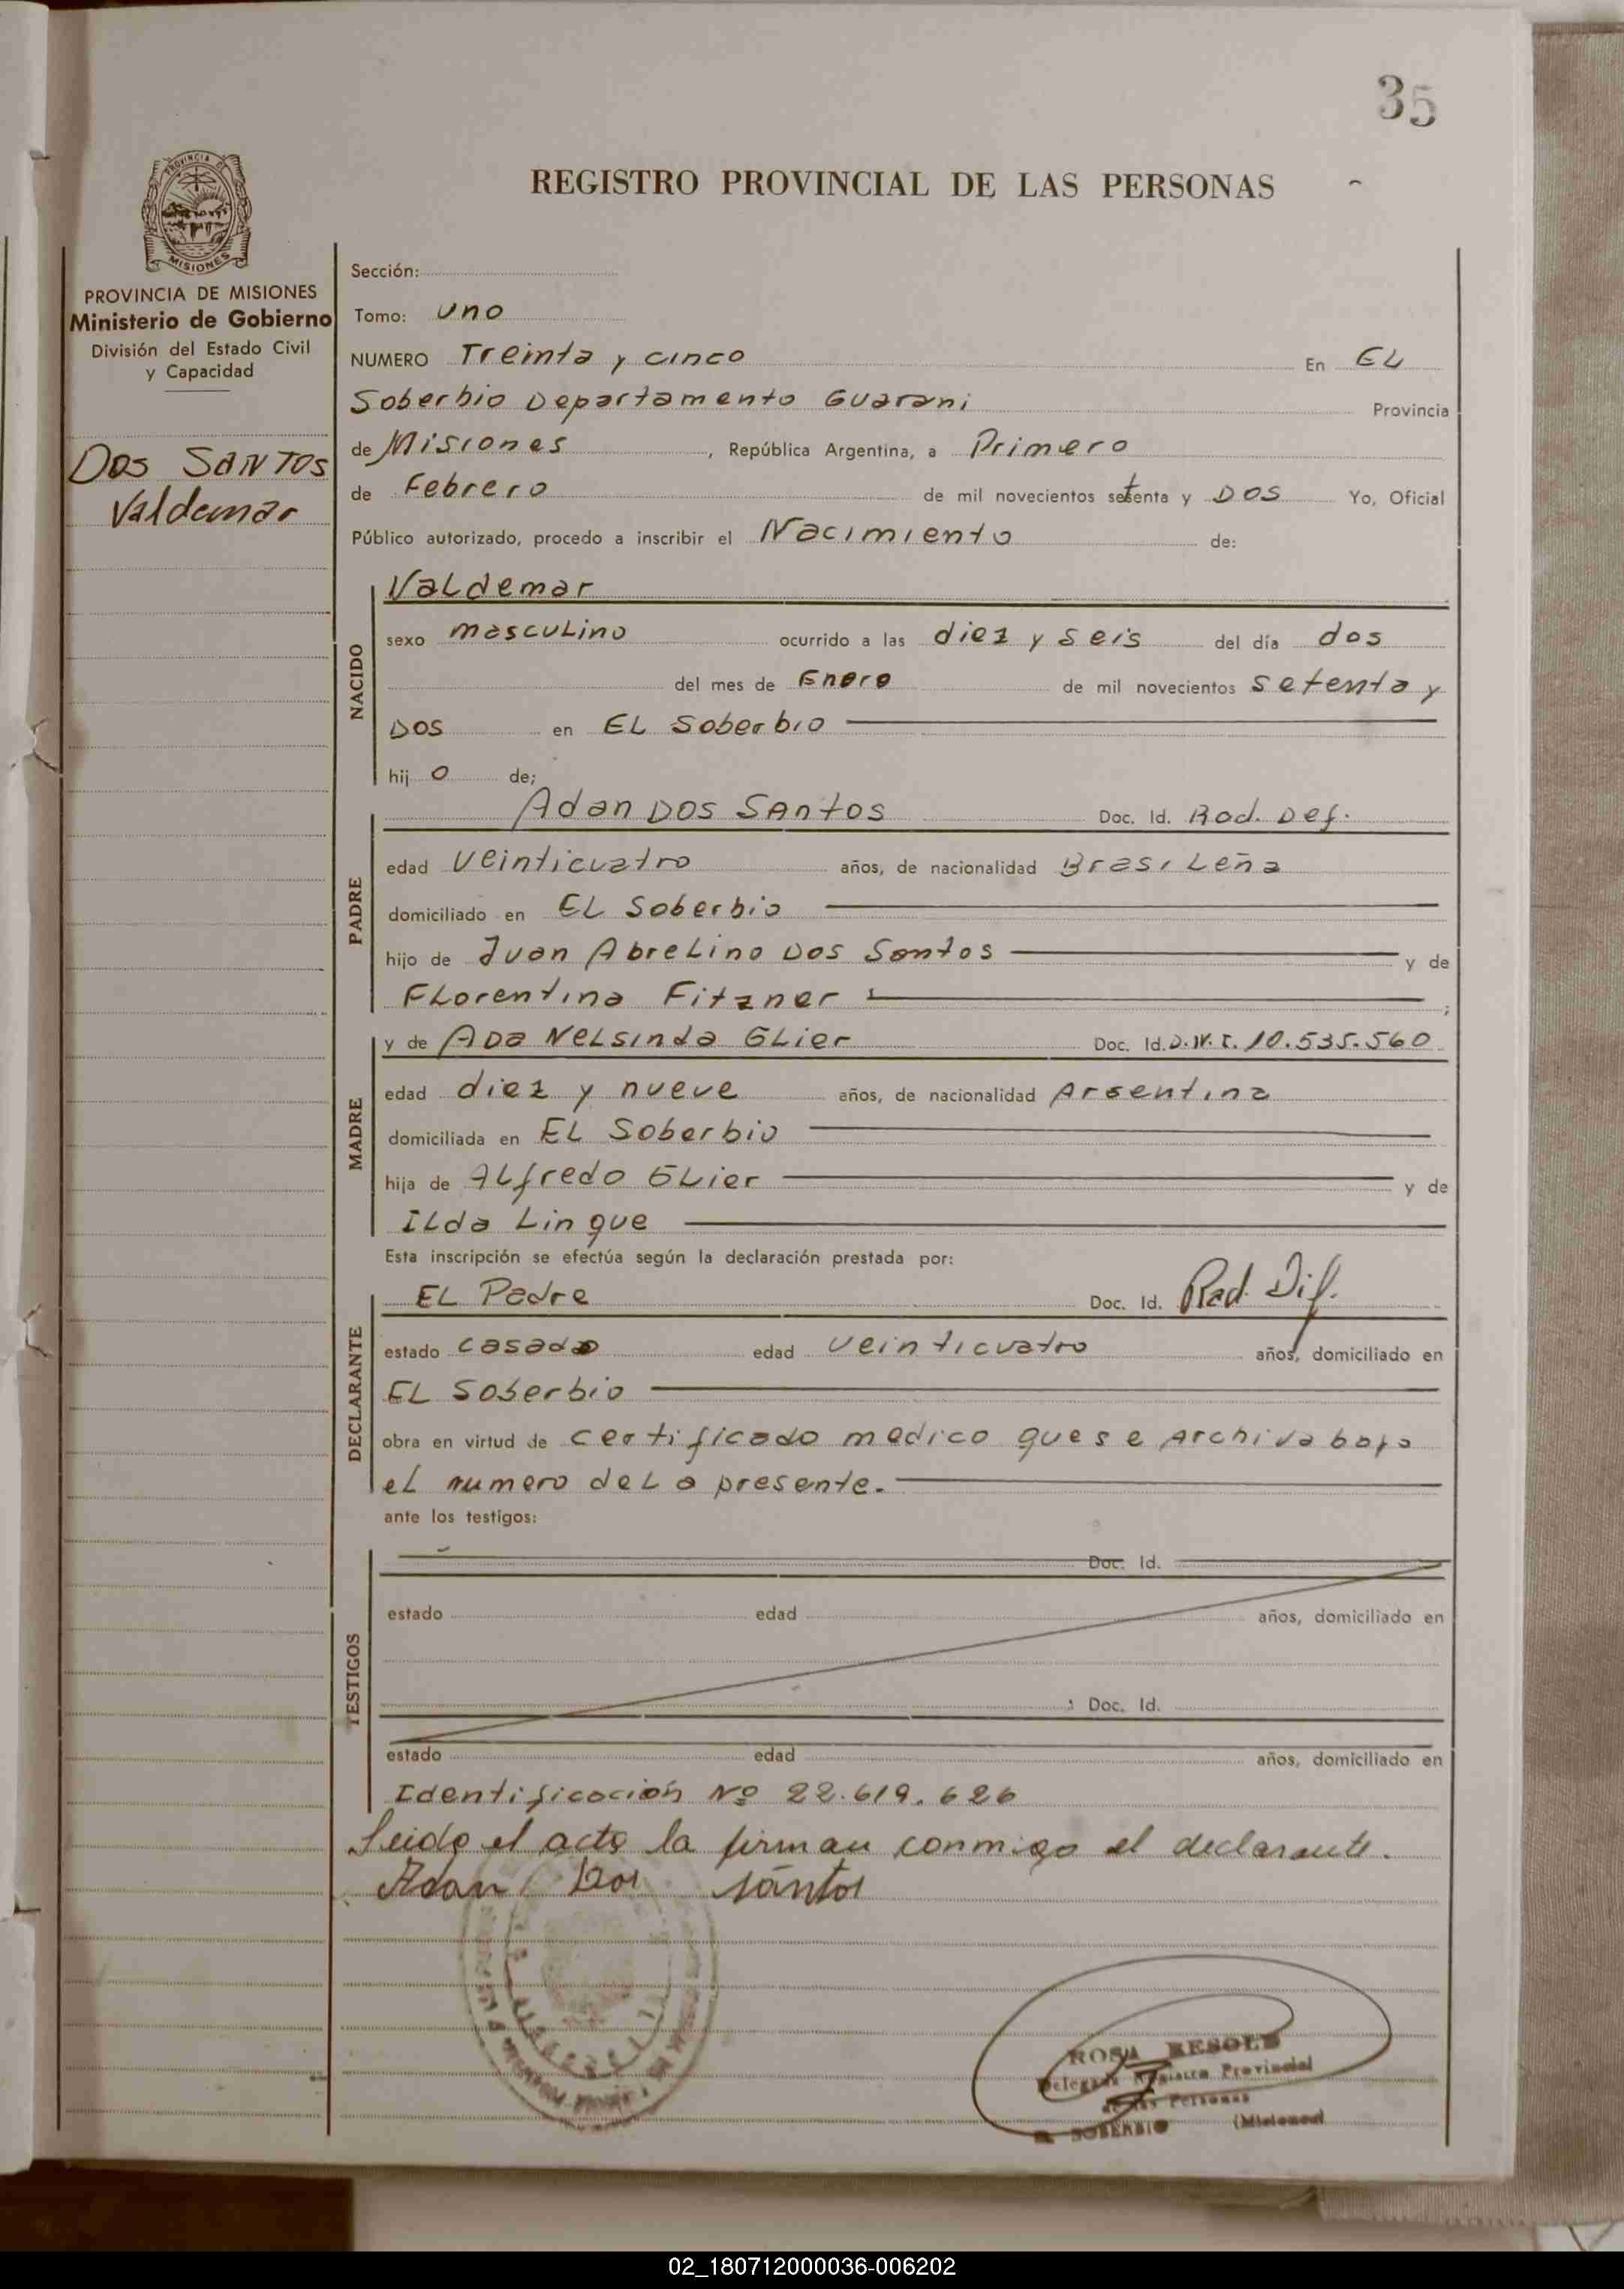 35
REGISTRO PROVINCIAL DE LAS PERSONAS
PROVINCIA DE
MISIONES
PROVINCIA DE MISIONES
Ministerio de Gobierno
División del Estado Civil
y Capacidad
DOS SANTOS
Valdemar
Sección:
Tomo: uno
NUMERO Treinta y cinco En EL
Soberbio Departamento Guarani Provincia
de Misiones, República Argentina, a Primero
de Febrero de mil novecientos setenta y DOS Yo, Oficial
Público autorizado, procedo a inscribir el Nacimiento de:
NACIDO
Valdemar
sexo masculino ocurrido a las diez y seis del día dos
del mes de Enero de mil novecientos setenta y
DOS en EL Soberbio
hij o de;
PADRE
Adan DOS SANTOS Doc. Id. Rad. Def.
edad veinticuatro años, de nacionalidad Brasileña
domiciliado en EL Soberbio
hijo de Juan Abrelino Dos Santos y de
Florentina Fitzner ;
MADRE
y de ADa NeLsinda GLier Doc. Id. D.N.I. 10.535.560
edad diez y nueve años, de nacionalidad Argentina
domiciliada en EL Soberbio
hija de ALfredo GLier y de
ILda Lingue
Esta inscripción se efectúa según la declaración prestada por:
DECLARANTE
EL Padre Doc. Id. Rad. Dif.
estado casado edad veinticuatro años, domiciliado en
EL Soberbio
obra en virtud de certificado medico que se archiva bajo
el numero de La presente.
ante los testigos:
TESTIGOS
Doc. Id.
estado edad años, domiciliado en
; Doc. Id.
estado edad años, domiciliado en
Identificación Nº 22.619.626
Leido el acta la firman conmigo el declarante.
Adan Dos Santos
ROSA RESOLD
Delegada Registro Provincial
de las Personas
EL SOBERBIO (Misiones)
02_180712000036-006202